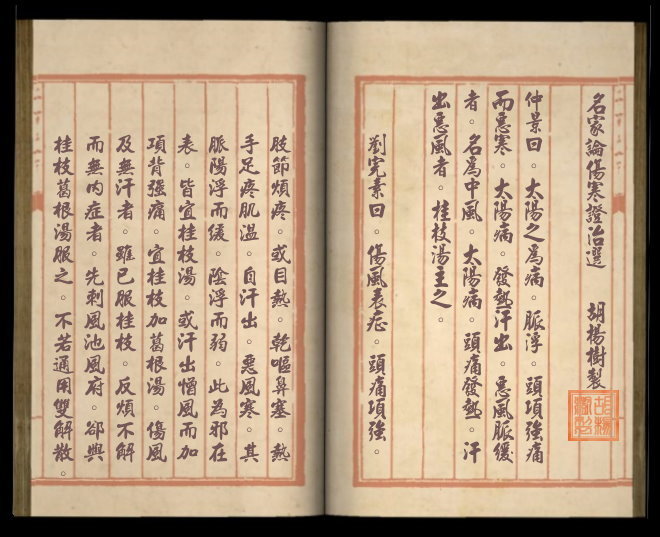 名家論傷寒證治選　胡楊樹製
仲景曰。太陽之為病。脈浮。頭項強痛
而惡寒。太陽病。發熱汗出。惡風脈緩
者。名為中風。太陽病。頭痛發熱。汗
出惡風者。桂枝湯主之。
劉完素曰。傷風表症。頭痛項強。
肢節煩疼。或目熱。乾嘔鼻塞。熱
手足疼肌溫。自汗出。惡風寒。其
脈陽浮而緩。陰浮而弱。此為邪在
表。皆宜桂枝湯。或汗出憎風而加
項背强痛。宜桂枝加葛根湯。傷風
及無汗者。雖已服桂枝。反煩不解
而無內症者。先刺風池風府。卻與
桂枝葛根湯服之。不若通用雙解散。